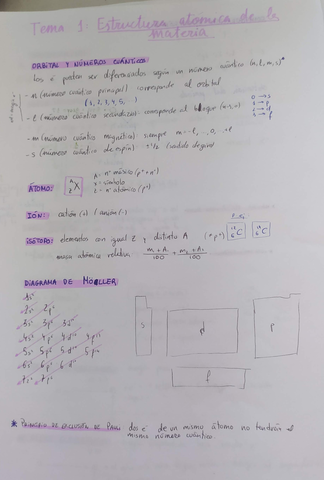 Tema 1: Estructura atomica de la materia
ORBITAL Y NÚMEROS CUÁNTICOS
los e⁻ pueden ser diferenciados según un número cuántico (n, l, m, s)*
- n (número cuántico principal) corresponde al orbital
(1, 2, 3, 4, 5, )
- l (número cuántico secundario) corresponde al bloque
0 → s
- m (número cuántico magnético) siempre m = -l, .., 0, .. +l
- s (número cuántico de espín) ± 1/2 (sentido de giro)
ÁTOMO: A Z X
A = nº másico (p⁺ + n⁰)
X = símbolo
Z = nº atómico (p⁺)
IÓN: catión (+) / anión (-)
ISÓTOPO: elementos con igual Z y distinto A
masa atómica relativa
DIAGRAMA DE MÖELLER
1s²
2s² 2p⁶
3s² 3p⁶ 3d¹⁰
4s² 4p⁶ 4d¹⁰ 4f¹⁴
5s² 5p⁶ 5d¹⁰ 5f¹⁴
6s² 6p⁶ 6d¹⁰
7s² 7p⁶
s d p
f
* PRINCIPIO DE EXCLUSIÓN DE PAULI dos e⁻ de un mismo átomo no tendrán el
mismo número cuántico.